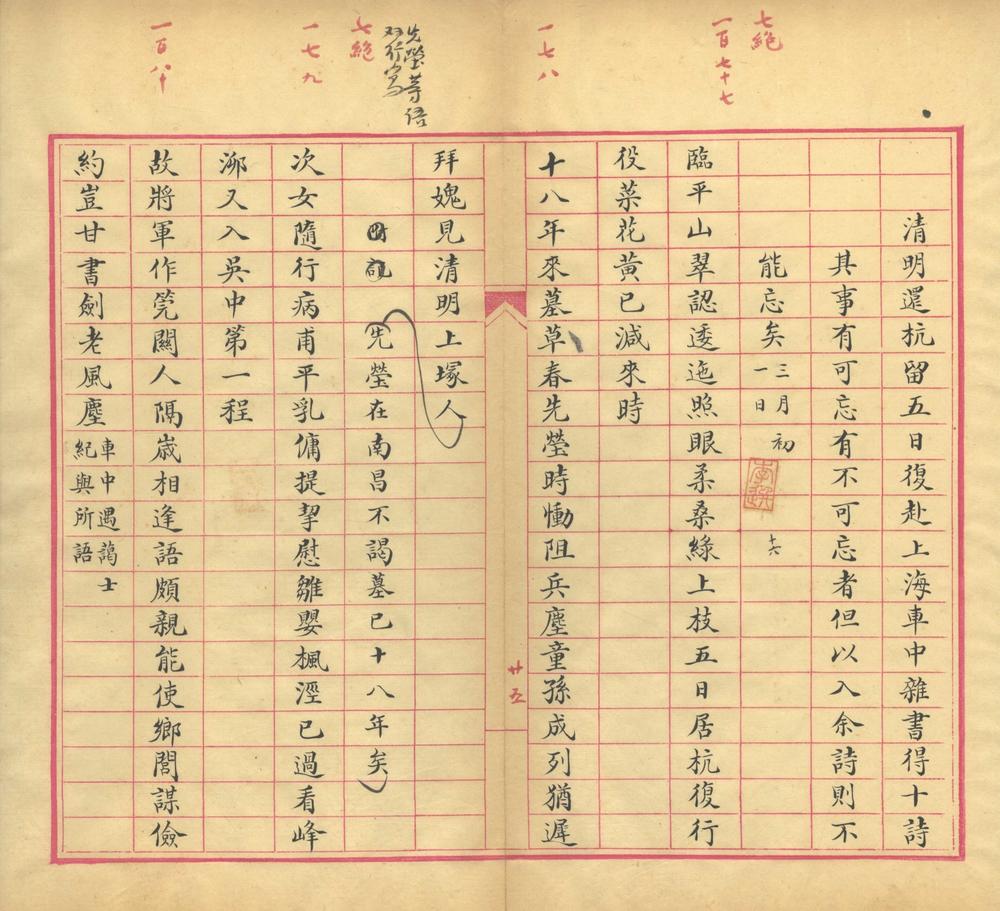 七絕
一百七十七
一七八
先瑩等语
双行写
七絕
一七九
一百八十
清明還杭留五日復赴上海車中雜書得十詩
其事有可忘有不可忘者但以入余詩則不
能忘矣三月初一日
十六
臨平山翠認逶迤照眼柔桑綠上枝五日居杭復行
役菜花黃已減來時
十八年來墓草春先瑩時慟阻兵塵童孫成列猶遲
廿五
拜媿見清明上塚人
先瑩在南昌不謁墓已十八年矣
次女隨行病甫平乳傭提挈慰雛嬰楓涇已過看峰
泖又入吳中第一程
故將軍作筦關人隔歲相逢語頗親能使鄉閭謀儉
約豈甘書劍老風塵車中遇藹士
紀與所語